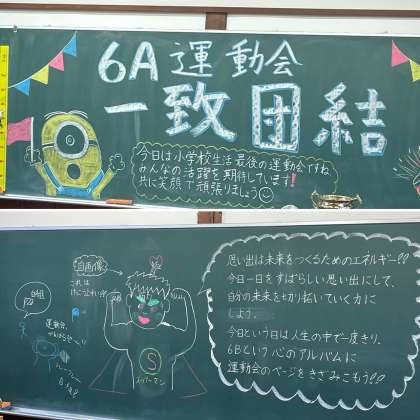 6A 運動会
一致団結
今日は小学校生活最後の運動会ですね
みんなの活躍を期待しています!
共に笑顔で頑張りましょう
自画像
これは
運動会、
S
スーパーマン
思い出は未来をつくるためのエネルギー!!
今日一日をすばらしい思い出にして、
自分の未来を切り拓いていく力に
しよう。
今日という日は人生の中で一度きり。
6Bという心のアルバムに
運動会のページをきざみこもう!!